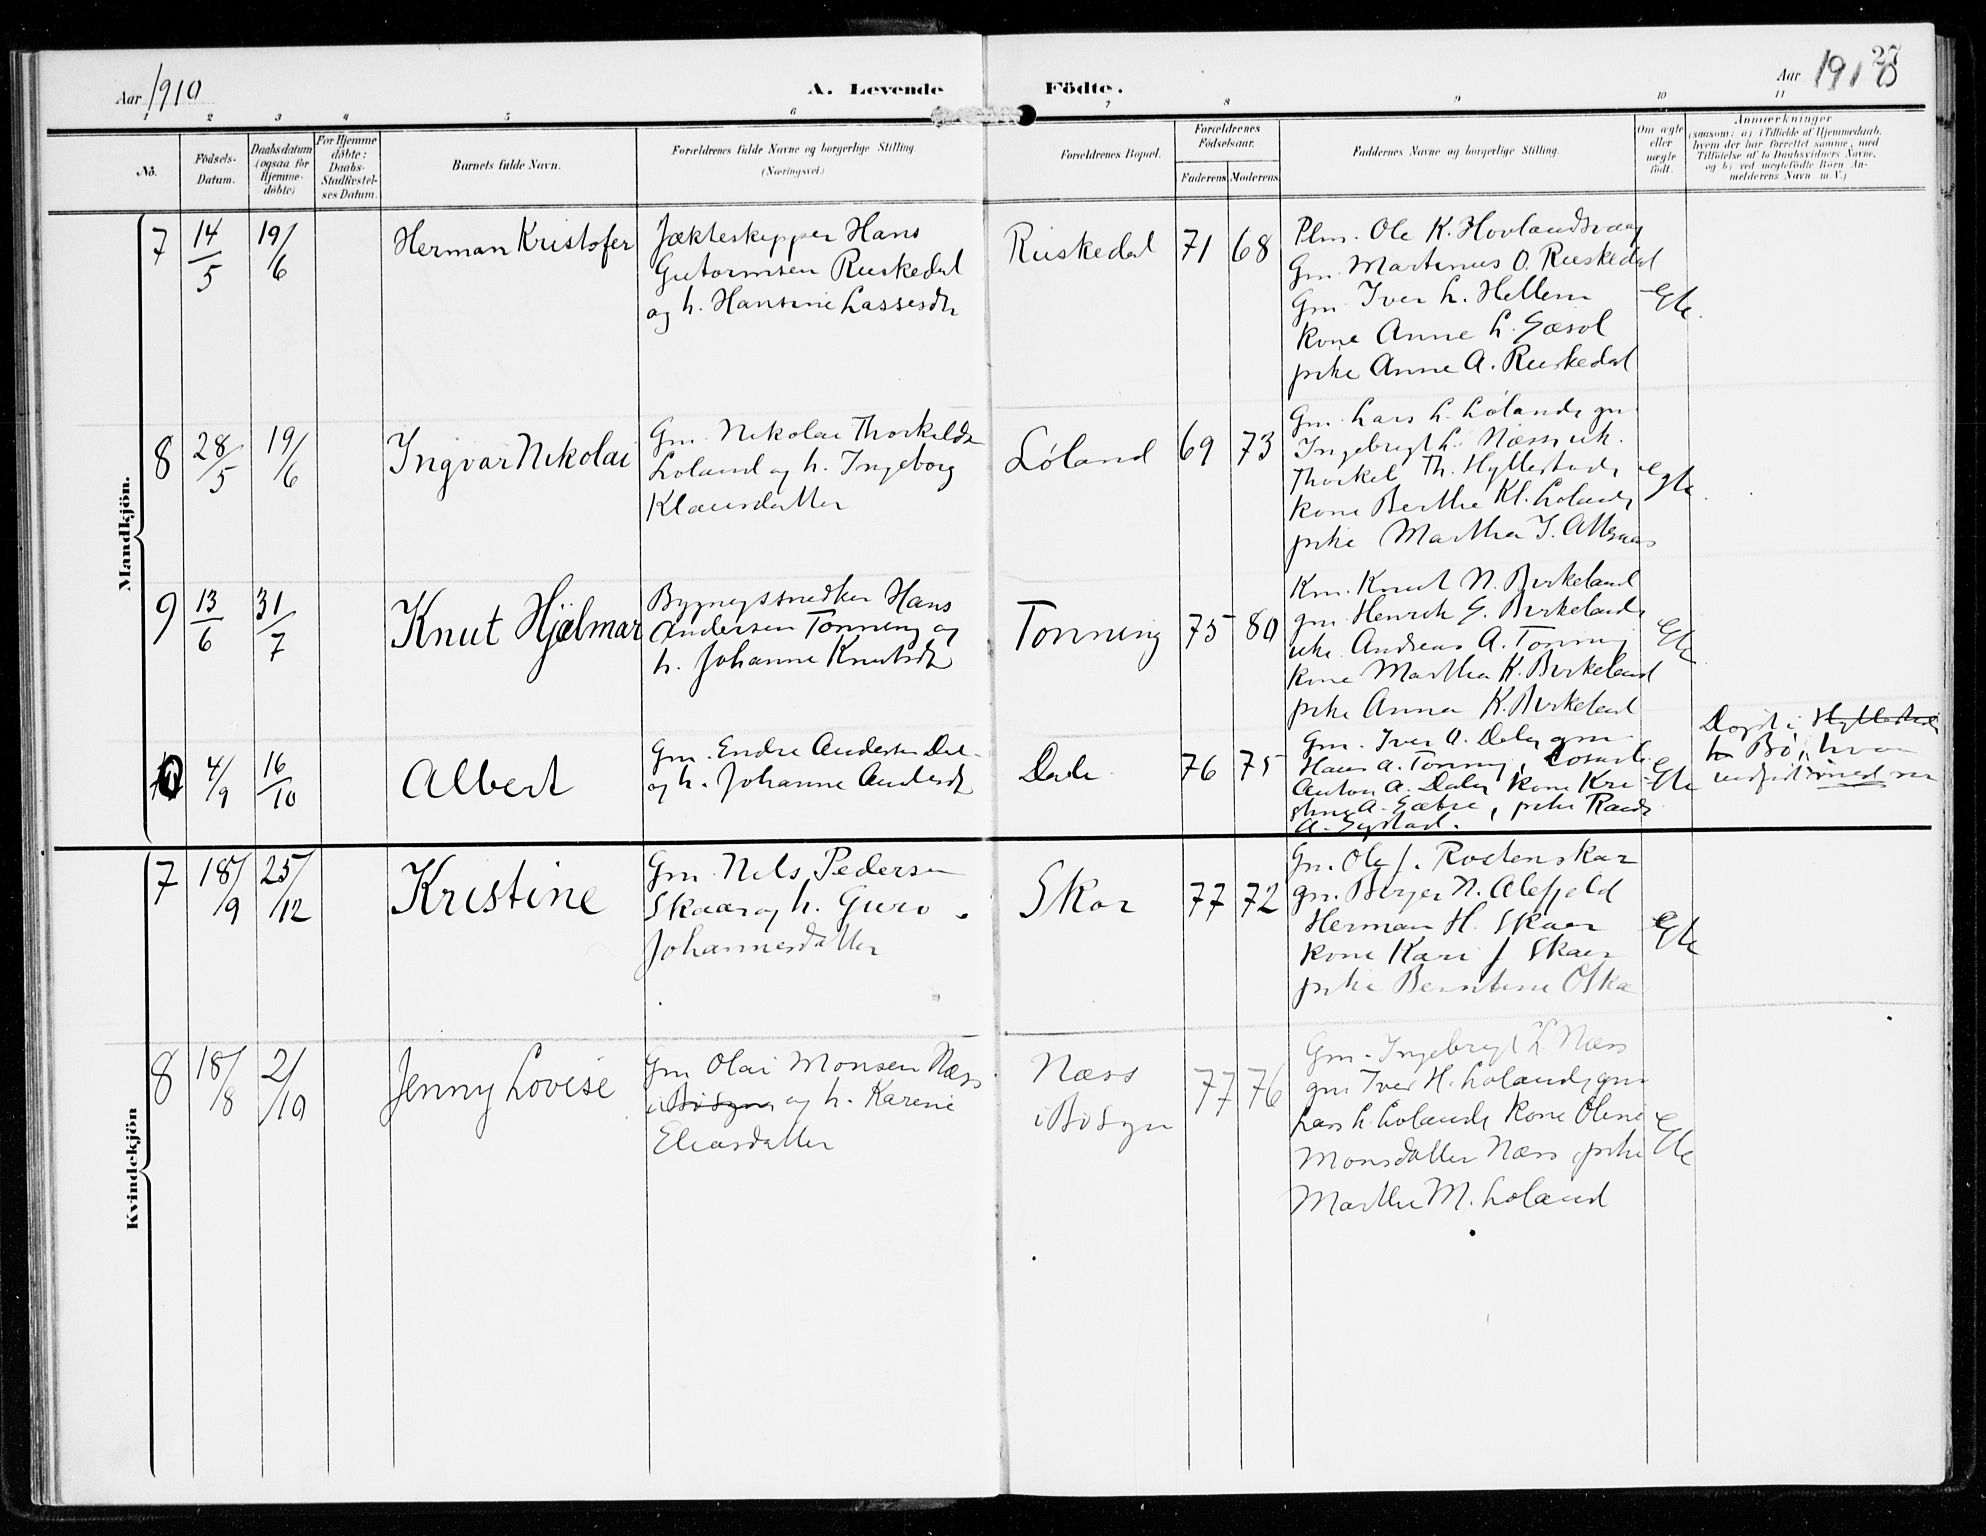 Aar 1910
A. Levende Födte.
Aar 1910
27
1 2 3 4 5 6 7 8 9 10 11
No.
Födsels-
Datum.
Daabsdatum
(ogsaa for
Hjemme-
döbte)
For Hjemme
döbte:
Daabs-
Stadfæstel-
ses Datum.
Barnets fulde Navn.
Forældrenes fulde Navne og borgerlige Stilling.
(Næringsvei.)
Forældrenes Bopæl.
Forældrenes
Födselsaar.
Faderens Moderens
Faddernes Navne og borgerlige Stilling.
Om ægte
eller
uægte
födt.
Anmærkninger
(saasom: a) i Tilfælde af Hjemmedaab,
hvem der har forrettet samme, med
Tilföielse af to Daabsvidners Navne,
og b) ved uægtefödte Börn An-
melderens Navn m. V.)
Mandkjön.
7
14/5
19/6
Herman Kristofer
Jækteskipper Hans
Gutormsen Ruskedal
og h. Hansine Lassesdtr
Ruskedal
71 68
Plm. Ole K. Hovlandsvaag
Gm. Martinus O. Ruskedal
Gm. Iver L. Hellem
kone Anne L. Gæsøl
pike Anne A. Ruskedal
Egte.
8
28/5
19/6
Ingvar Nikolai
Gm. Nikolai Thorkilds
Loland og h. Ingeborg
Klausdatter
Løland
69 73
Gm. Lars L. Lølands gm.
Ingebrigt L. Næss uk.
Thorkel Th. Hyllestads
kone Berthe Kl. Lolands
pike Martha I.
Egte.
9
13/6
31/7
Knut Hjelmar
Bygnigssnedker Hans
Andersen Tonning og
h. Johanne Knutsdt
Tonning
75 80
Km. Knut N. Birkeland
gm. Henrik G. Birkelands
uk. Andreas A. Tonning
kone Martha K. Birkeland
pike Anna K. Birkeland
Egte
10
4/9
16/10
Albert
Gm. Endre Andersen Dale
og h. Johanne Andersdt
Dale
76 75
Gm. Iver A. Dale, gm
Hans A. Tonning,
Anton A. Dale, kone Kri-
stine A. Sæbøe, pike
A.
Egte
Døpt i Hyllestad
Bø, hvor
Kvindekjön
7
18/9
25/12
Kristine
Gm. Nils Pedersen
Skaar og h. Guro
Johannesdatter
Skor
77 72
Gm. Ole J. Roetenskar
gm. Birger N. Alefjeld
Herman H. Skaar
kone Kari J Skaar
pike Berntine O Ska
Egte
8
18/8
2/10
Jenny Lovise
Gm Olai Monsen Næss
i Bø Sygn og h. Karene
Eliasdatter
Næss
i Bø Sygn
77 76
Gm. Ingebrigt L. Næss
gm Iver H. Lolands, gm
Lars L. Lolands kone Oline
Monsdatter Næss, pike
Marthe M. Loland
Egte